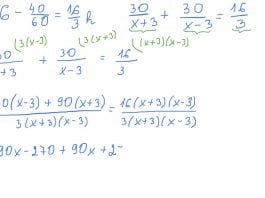 6 - 40/60 = 16/3 h    30/(x+3) + 30/(x-3) = 16/3
(3(x-3)  (3(x+3)  (x+3)(x-3)
30/(x+3) + 30/(x-3) = 16/3
(90(x-3) + 90(x+3))/(3(x+3)(x-3)) = 16(x+3)(x-3)/(3(x+3)(x-3))
90x - 270 + 90x + 2